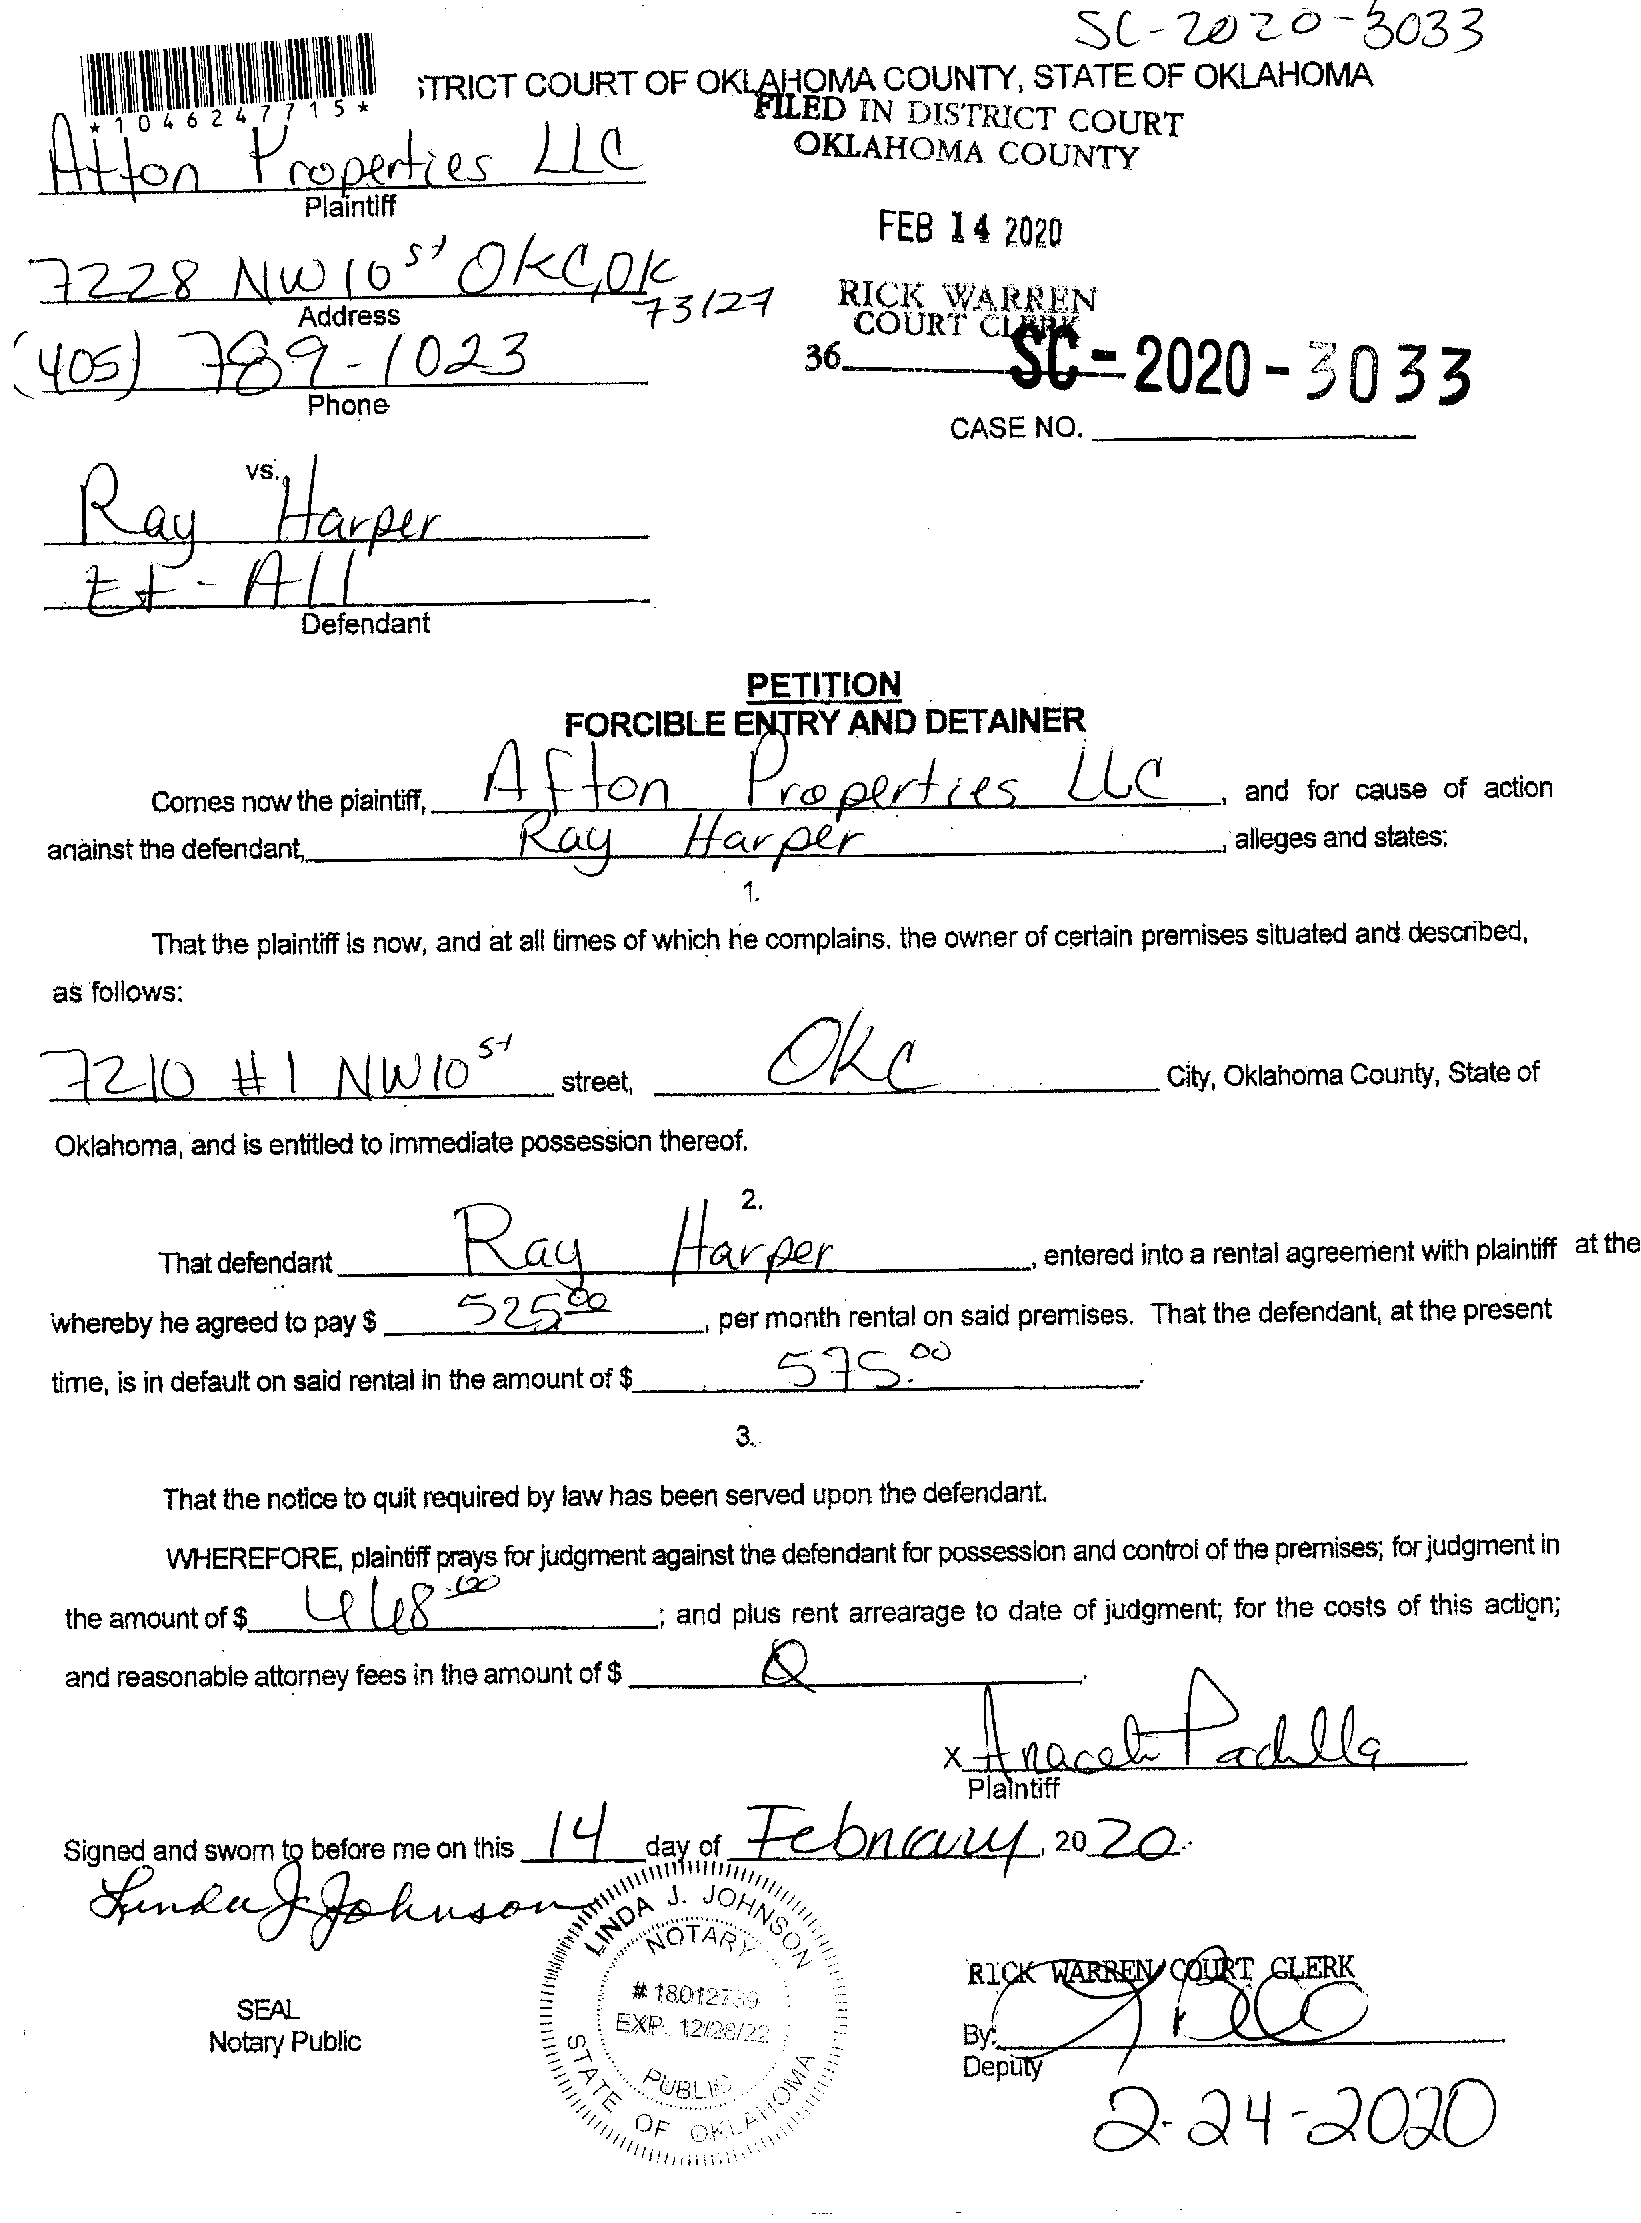 SC-2020-3033
*1046247715*
STRICT COURT OF OKLAHOMA COUNTY, STATE OF OKLAHOMA
FILED IN DISTRICT COURT
OKLAHOMA COUNTY
Afton Properties LLC
Plaintiff
FEB 14 2020
7228 NW 10 St OKC, OK
73127
Address
RICK WARREN
COURT CLERK
(405) 789-1023
Phone
36
SC-2020-3033
CASE NO.
vs.
Ray Harper
Et-All
Defendant
PETITION
FORCIBLE ENTRY AND DETAINER
Comes now the plaintiff, Afton Properties LLC, and for cause of action
against the defendant, Ray Harper, alleges and states:
1.
That the plaintiff is now, and at all times of which he complains, the owner of certain premises situated and described,
as follows:
7210 #1 NW 10 St street, OKC City, Oklahoma County, State of
Oklahoma, and is entitled to immediate possession thereof.
2.
That defendant Ray Harper, entered into a rental agreement with plaintiff at the
whereby he agreed to pay $ 525.00, per month rental on said premises. That the defendant, at the present
time, is in default on said rental in the amount of $ 575.00.
3.
That the notice to quit required by law has been served upon the defendant.
WHEREFORE, plaintiff prays for judgment against the defendant for possession and control of the premises; for judgment in
the amount of $ ; and plus rent arrearage to date of judgment; for the costs of this action;
and reasonable attorney fees in the amount of $ 0.
x Araceli Padilla
Plaintiff
Signed and sworn to before me on this 14 day of February, 2020.
Linda J Johnson
LINDA J. JOHNSON
NOTARY
EXP. 12/28/22
PUBLIC
STATE OF OKLAHOMA
SEAL
Notary Public
RICK WARREN COURT CLERK
By:
Deputy
2-24-2020